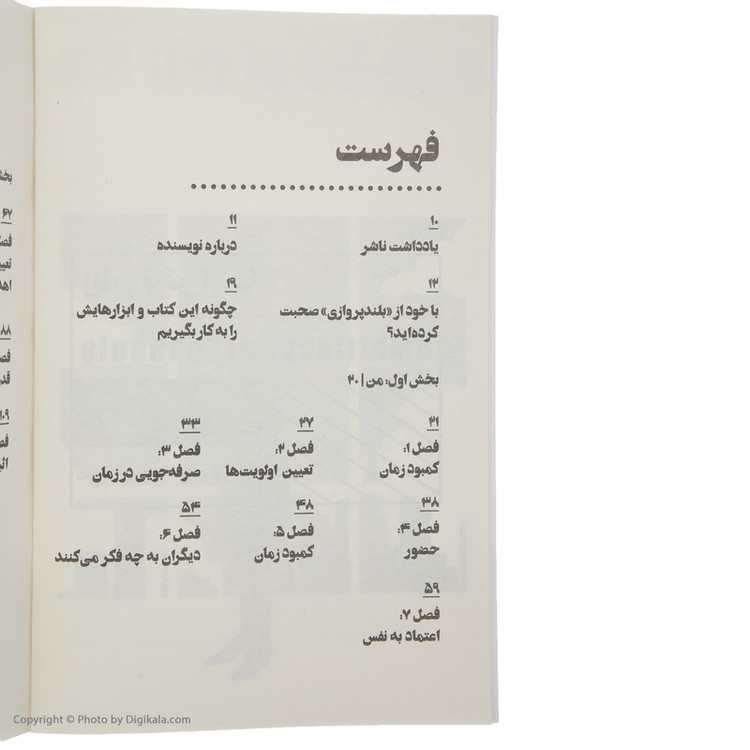 فهرست
۱۰
یادداشت ناشر
۱۱
درباره نویسنده
۱۲
با خود از «بلندپروازی» صحبت
کرده‌اید؟
۱۹
چگونه این کتاب و ابزارهایش
را به کار بگیریم
بخش اول: من | ۲۰
۲۱
فصل ۱:
کمبود زمان
۲۷
فصل ۲:
تعیین اولویت‌ها
۳۳
فصل ۳:
صرفه‌جویی در زمان
۳۸
فصل ۴:
حضور
۴۸
فصل ۵:
کمبود زمان
۵۴
فصل ۶:
دیگران به چه فکر می‌کنند
۵۹
فصل ۷:
اعتماد به نفس
۶۷
۸۸
۱۰۹
Copyright © Photo by Digikala.com